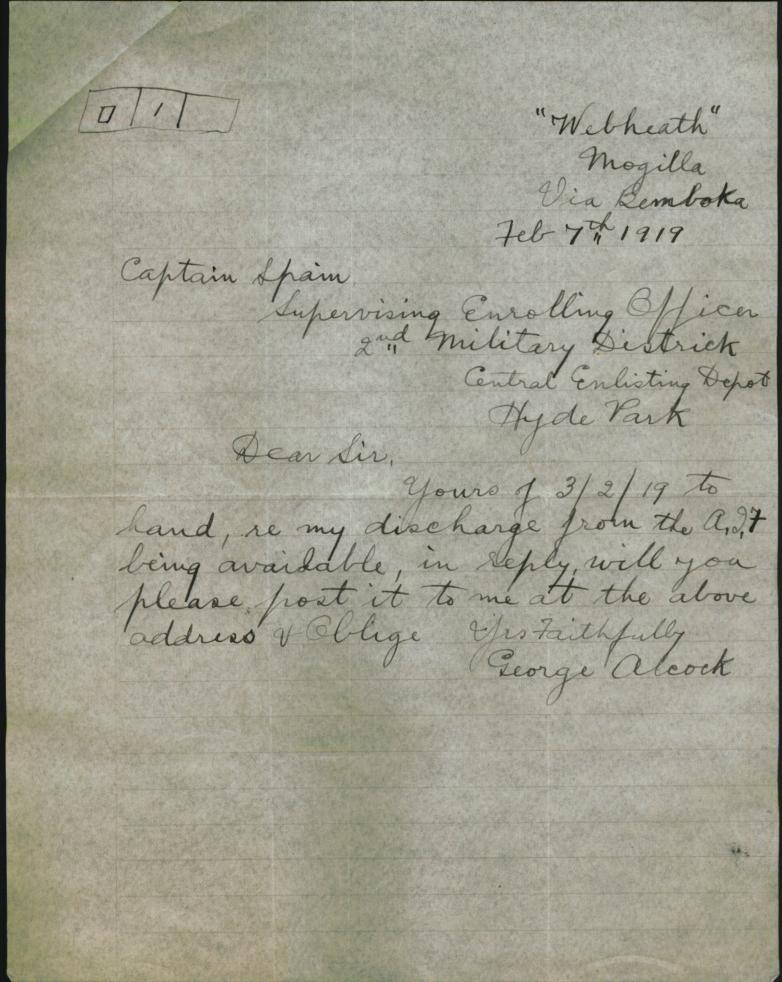 0 1
"Webheath"
Mogilla
Via Bemboka
Feb 7th 1919
Captain Spain
Supervising Enrolling Officer
2nd Military Districk
Central Enlisting Depot
Hyde Park
Dear Sir,
Yours of 3/2/19 to
hand, re my discharge from the A.I.F
being avaidable, in reply, will you
please post it to me at the above
address & Oblige Yrs Faithfully
George Alcock